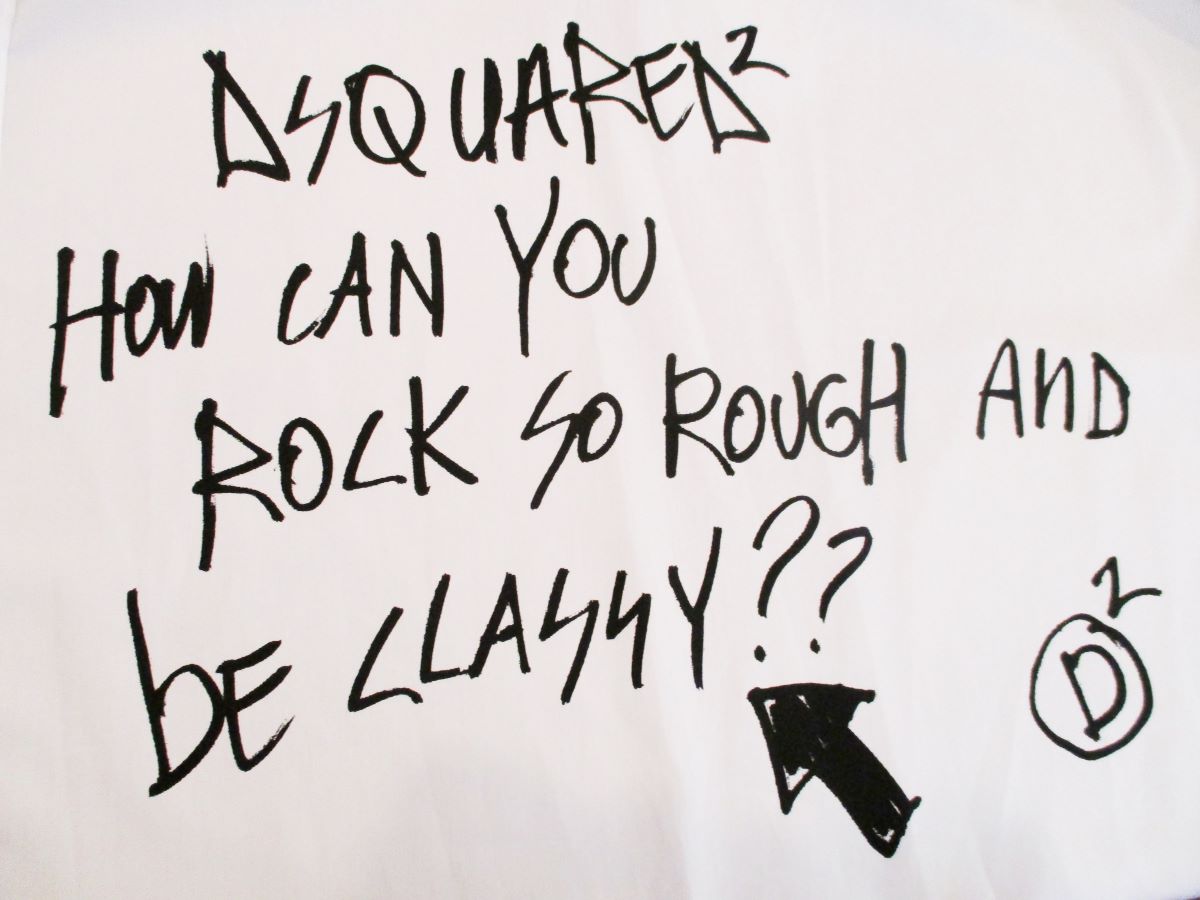 DSQUARED²
HOW CAN YOU
ROCK SO ROUGH AND
bE CLASSY??
D²